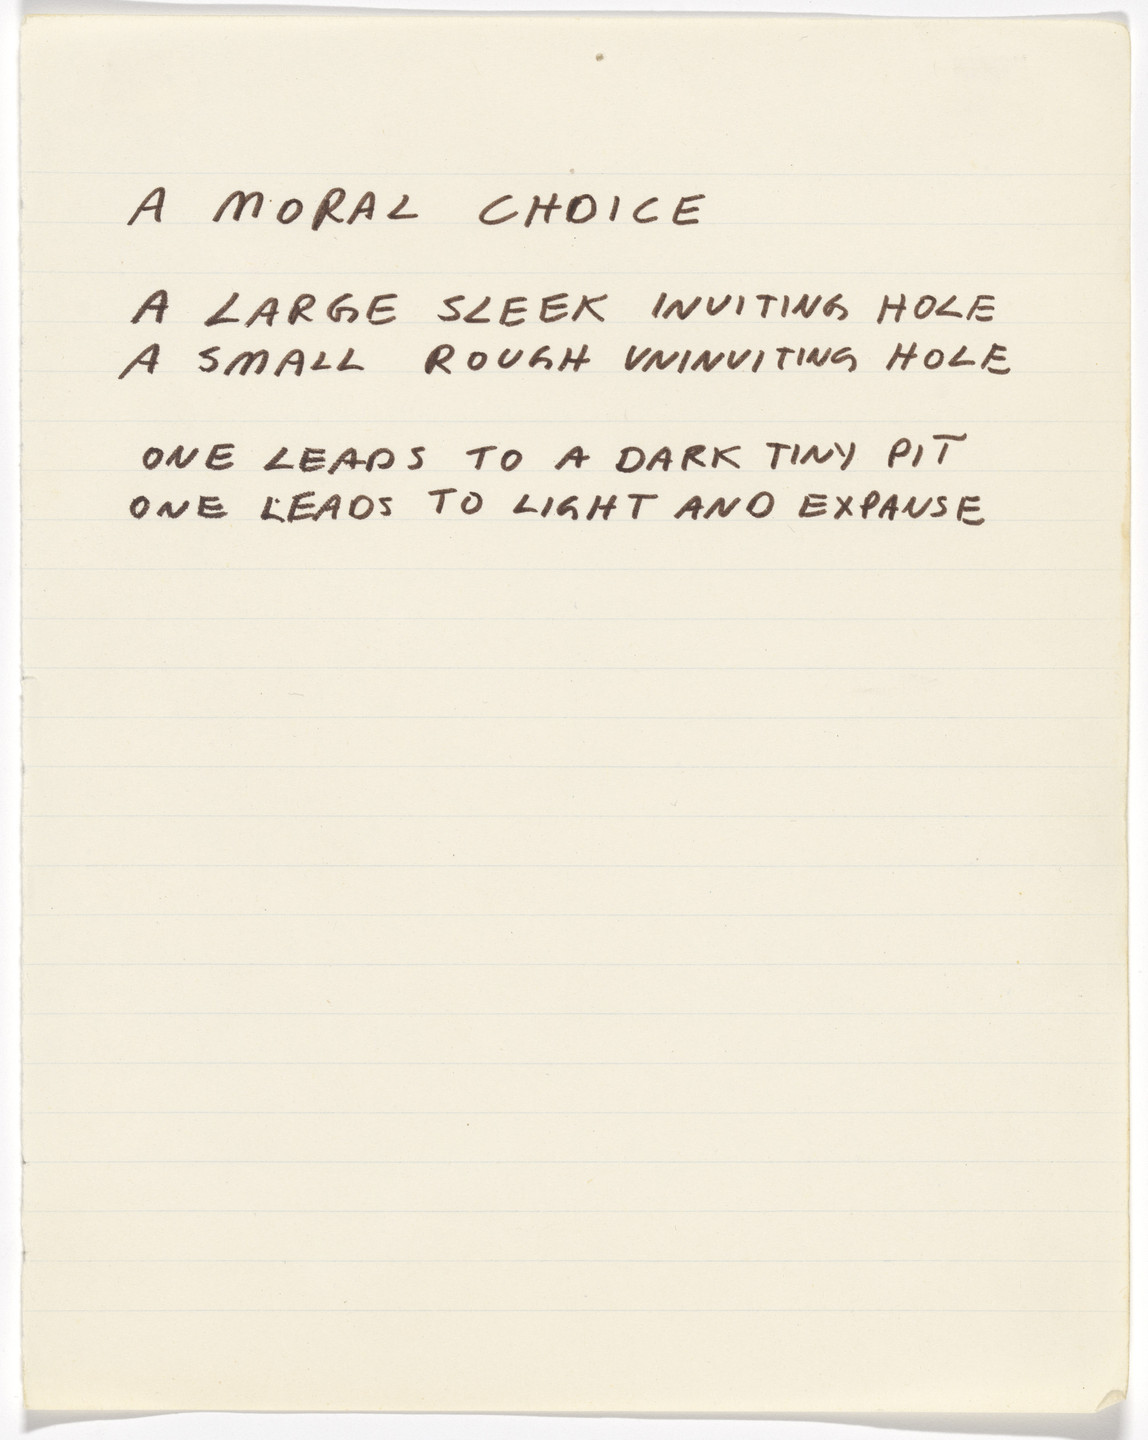 A MORAL CHOICE
A LARGE SLEEK INVITING HOLE
A SMALL ROUGH UNINVITING HOLE
ONE LEADS TO A DARK TINY PIT
ONE LEADS TO LIGHT AND EXPANSE